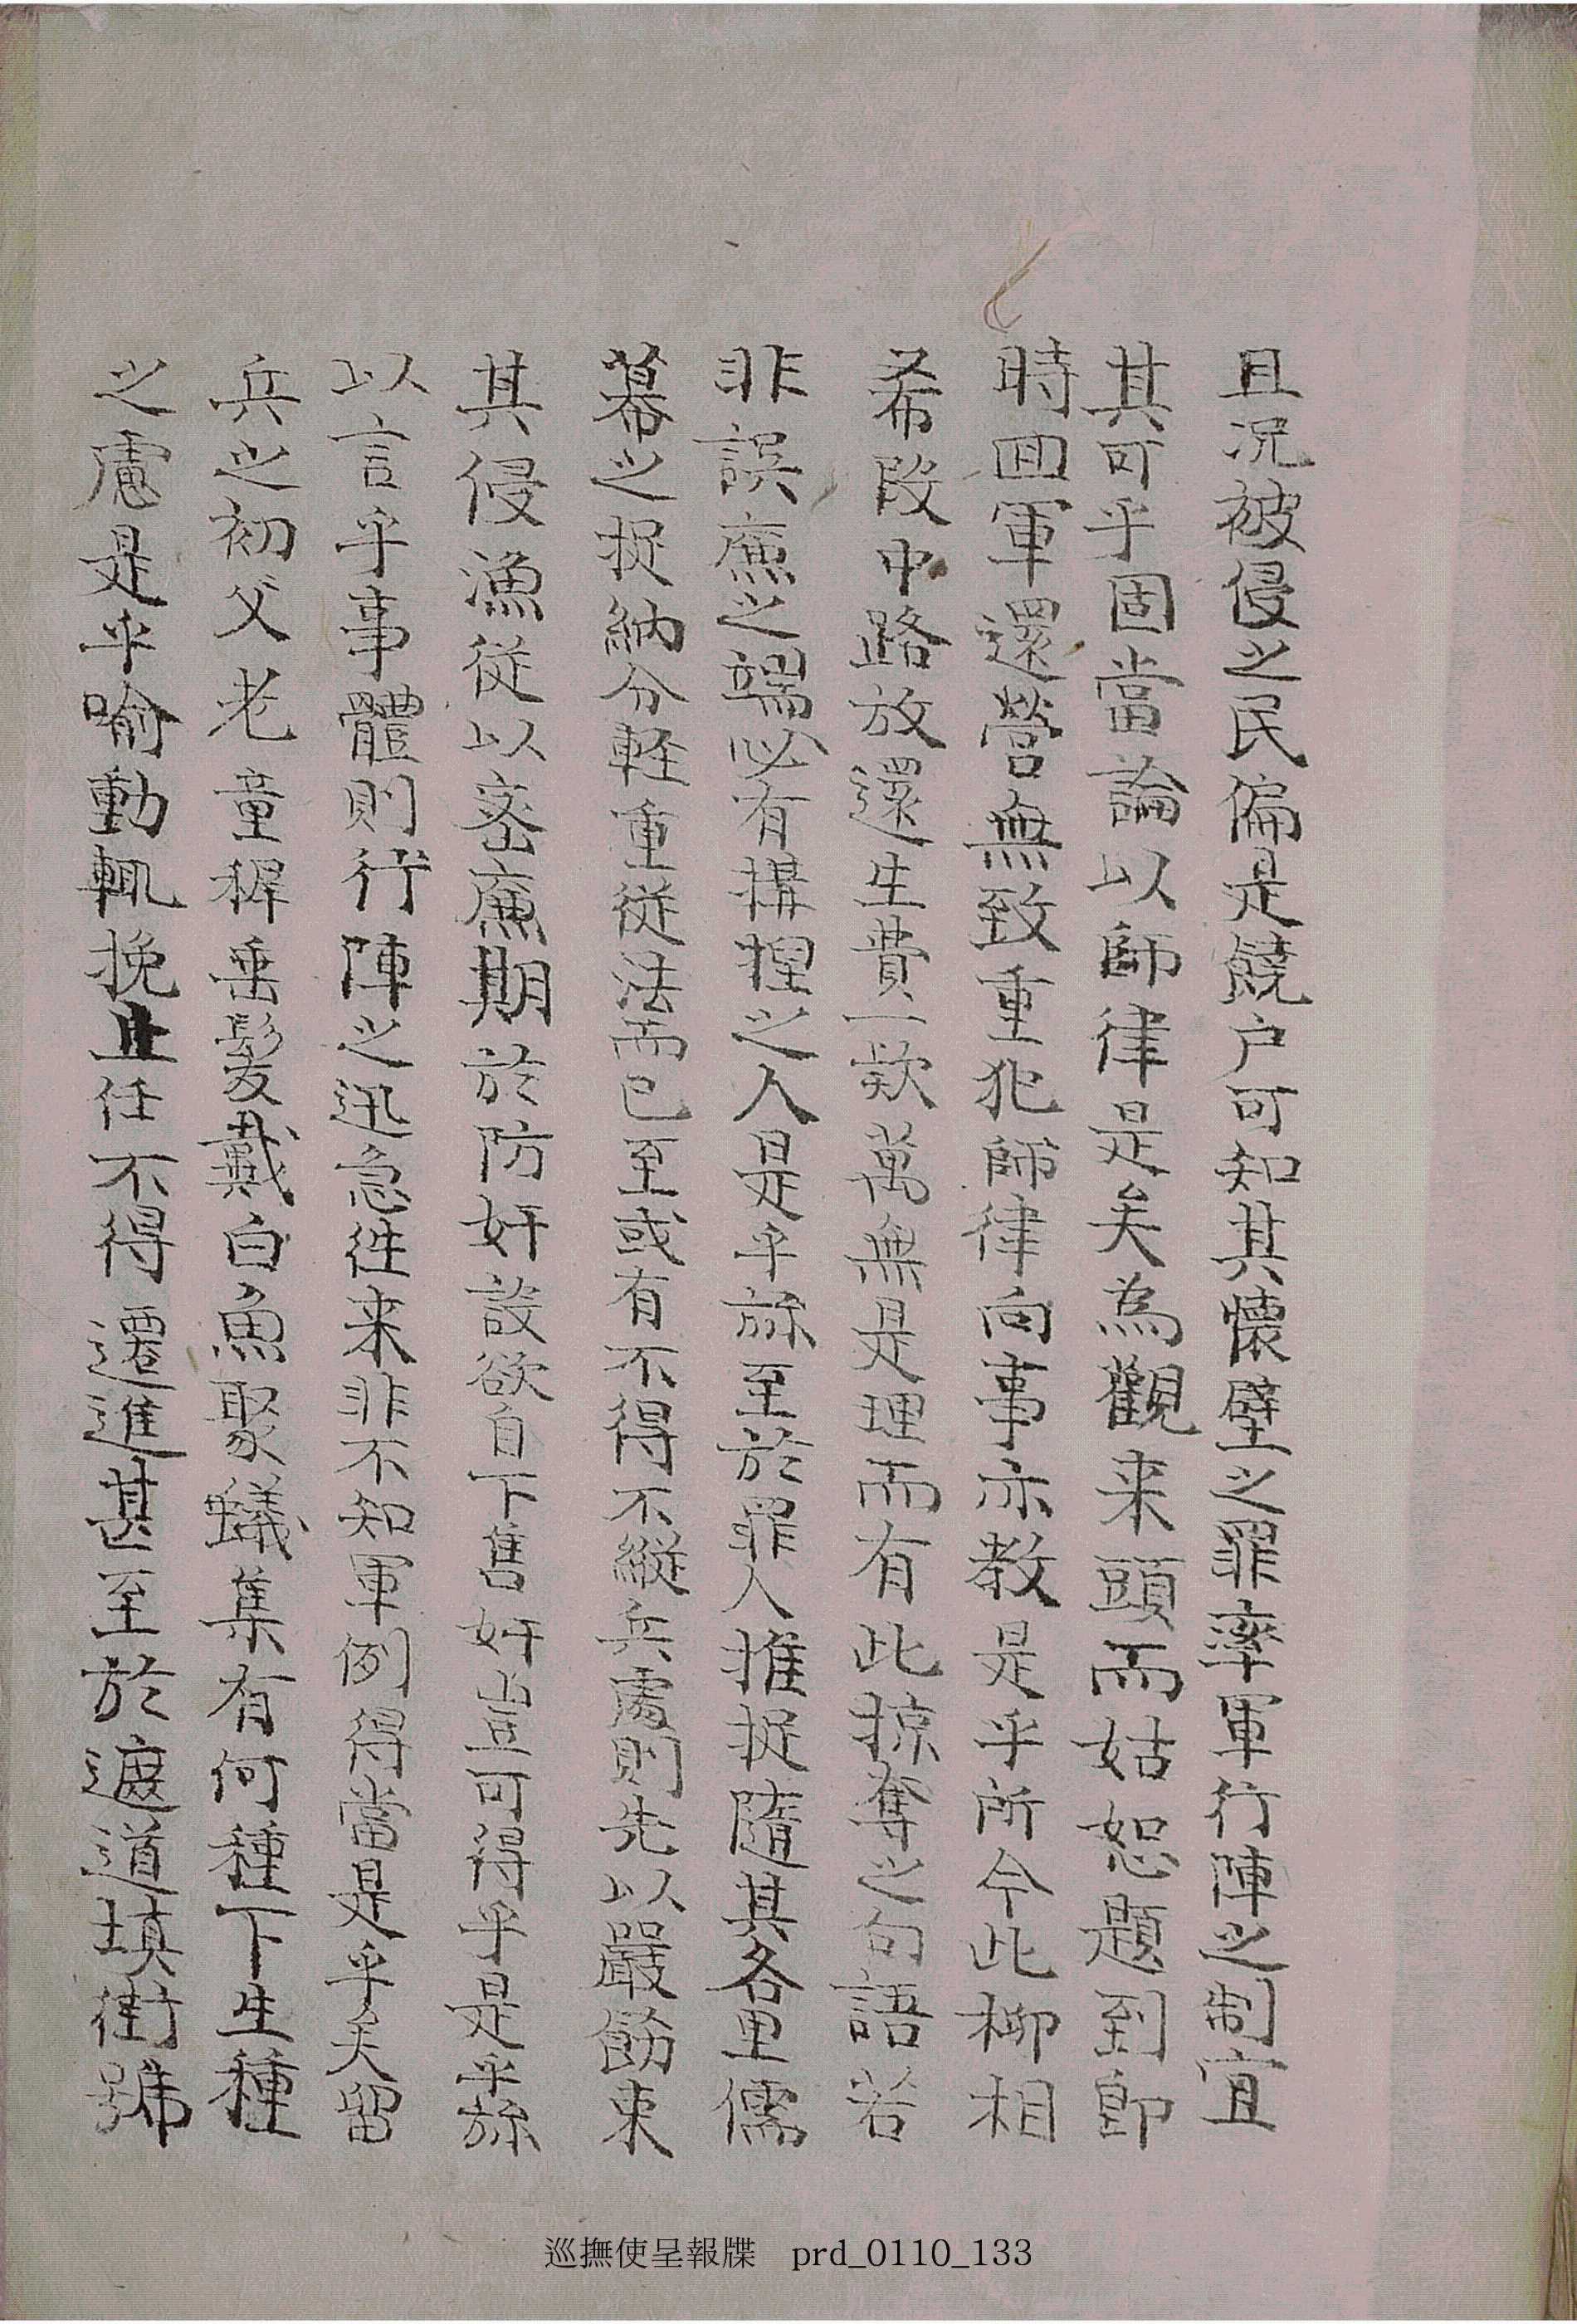 且况被侵之民偏是饒户可知其懷璧之罪率軍行陣之制宜
其可乎固當論以師律是矣為觀来頭而姑恕題到卽
時囬軍還營無致重犯師律向事亦教是乎所今此柳相
希段中路放還生費一款萬無是理而有此掠奪之句語若
非誤廉之端必有搆捏之人是乎旀至於罪人推捉隨其各里儒
幕之捉納分輕重從法而已至或有不得不縱兵處則先以嚴飭束
其侵漁從以密廉期於防奸設欲自下售奸豈可得乎是乎旀
以言乎事體則行陣之迅急徃来非不知軍例得當是乎矣留
兵之初父老童穉垂髮戴白魚聚蟻集有何種下生種
之慮是乎喻動輒挽止任不得遷進甚至於遮道填街號
巡撫使呈報牒 prd_0110_133